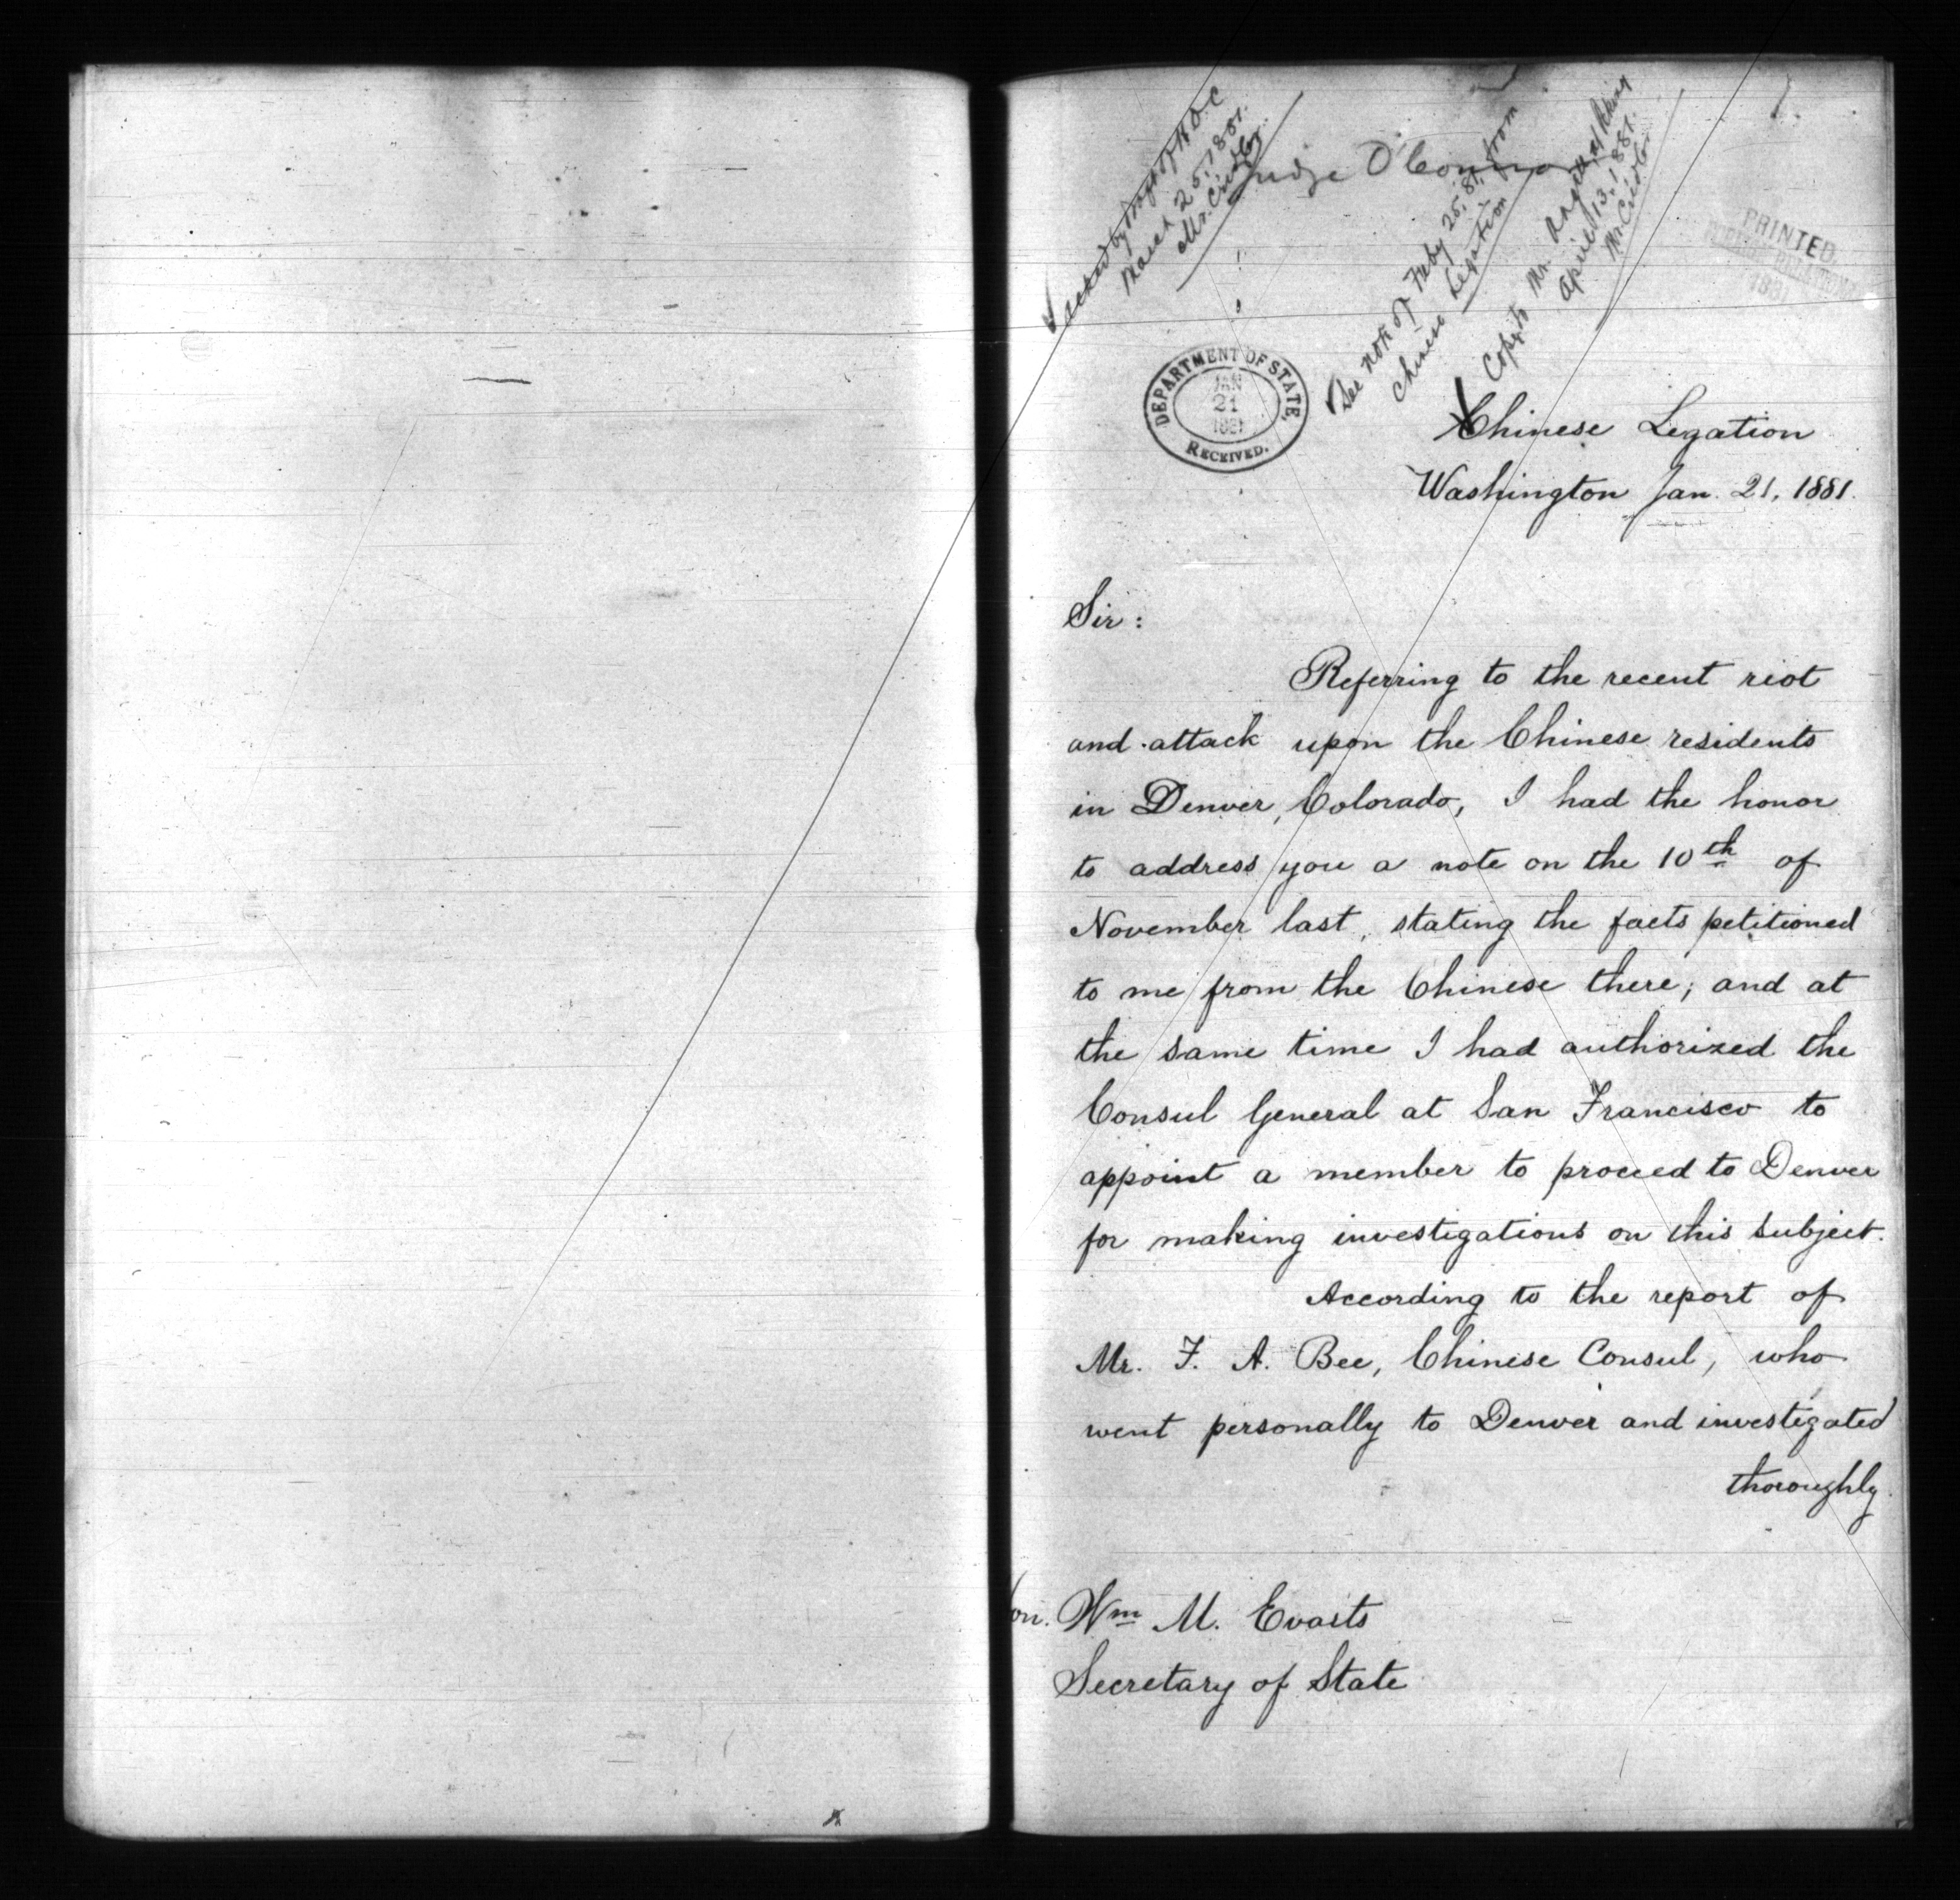 March 25, 1881.
Mr. Cridler.
Judge O'Connor
See note of Feby 25, 81, from
Chinese Legation
Copy to Mr. Angell at Peking
April 13, 1881.
Mr. Cridler
PRINTED
1881
DEPARTMENT OF STATE,
JAN
21
1881
RECEIVED.
Chinese Legation
Washington Jan. 21, 1881.
Sir:
Referring to the recent riot
and attack upon the Chinese residents
in Denver, Colorado, I had the honor
to address you a note on the 10th of
November last, stating the facts petitioned
to me from the Chinese there; and at
the same time I had authorized the
Consul General at San Francisco to
appoint a member to proceed to Denver
for making investigations on this subject.
According to the report of
Mr. F. A. Bee, Chinese Consul, who
went personally to Denver and investigated
thoroughly
on. Wm M. Evarts
Secretary of State